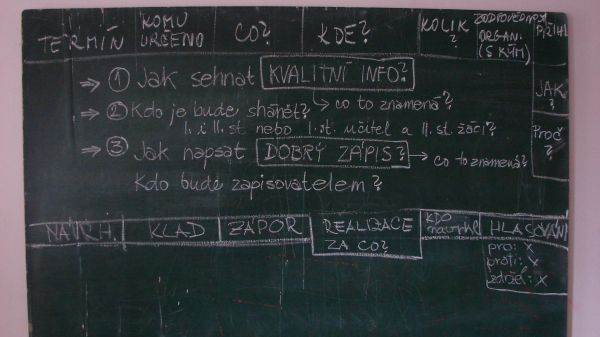 TERMÍN KOMU URČENO CO? KDE? KOLIK? ORGANI. (S KÝM)
JAK?
Proč?
→ ① Jak sehnat KVALITNÍ INFO?
→ co to znamená?
→ ② Kdo je bude shánět?
I. i II. st. nebo I. st. učitel a II. st. žáci?
→ ③ Jak napsat DOBRÝ ZÁPIS? → co to znamená?
Kdo bude zapisovatelem?
NÁVRH. KLAD ZÁPOR REALIZACE ZA CO? KDO HLASOVÁNÍ
pro: x
proti: x
zdržel: x